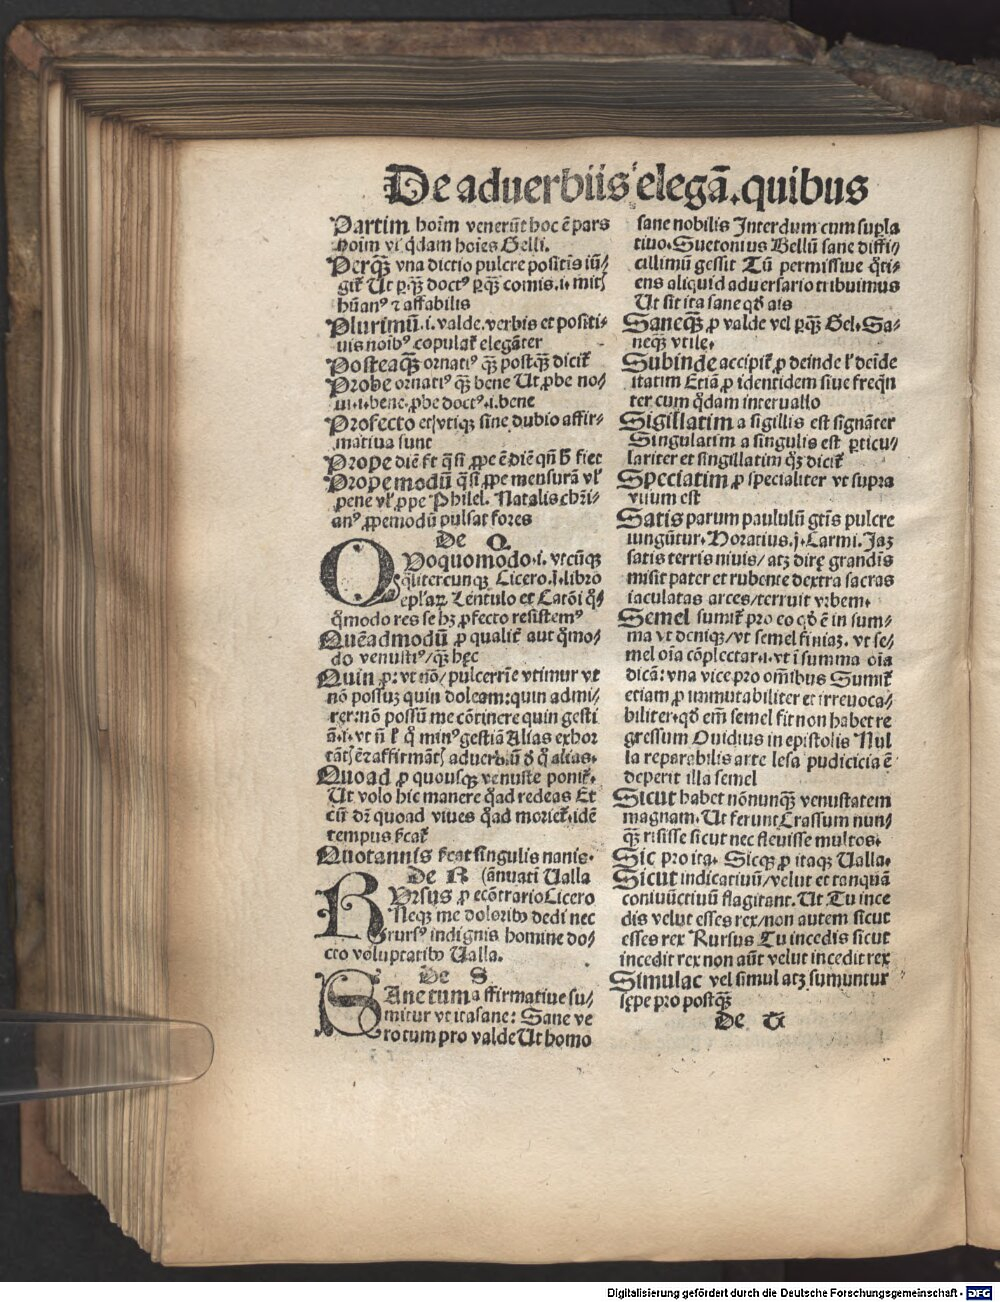 De aduerbiis elegā. quibus
Partim hoīm venerūt hoc ē pars
hoīm vl' q̄dam hoīes Gelli.
Perqꝫ vna dictio pulcre positis iū⸗
git͛ Ut ꝑqꝫ doctꝰ ꝑqꝫ comis .i. mitꝭ
hūanꝰ ⁊ affabilis
Plurimū .i. valde. verbis et positi⸗
uis noībꝰ copulat͛ elegāter
Posteaqꝫ ornatiꝰ qꝫ postqꝫ dicit͛
Probe ornatiꝰ qꝫ bene Ut ꝓbe no⸗
ui .i. bene. ꝓbe doctꝰ .i. bene
Profecto et vtiqꝫ sine dubio affir⸗
matiua sunt
Prope diē
Prope modū q̄si ꝓpe mensurā vl'
pene vl' ꝓpe Philel. Natalis chr̄i⸗
anꝰ ꝓpemodū pulsat fores
De Q
QUoquomodo .i. vtcūqꝫ
qͣlitercunqꝫ Cicero .j. libro
epl'aꝝ Lentulo et Catōi q̄⸗
q̄modo res se hꝫ ꝓfecto resistemꝰ
Quēadmodū ꝓ qualit͛ aut q̄mo⸗
do venustiꝰ/ qꝫ hęc
Quin ꝓ: vt nō/ pulcerrīe vtimur vt
nō possuꝫ quin doleam: quin admi⸗
rer: nō possū me cōtinere quin gesti
ā .i. vt n̄ l' q̄ minꝰ gestiā Alias exhor
tātꝭ ē ⁊ affirmātꝭ aduerb.
Quoad ꝓ quousqꝫ venuste ponit͛.
Ut volo hic manere q̄ad redeas Et
cū dr̄ quoad viues q̄ad moriet͛. idē
tempus
Quotannis singulis nanis.
De R (ānuati Ualla
RUrsus ꝓ ecōtrario Cicero
Neqꝫ me doloribꝰ dedi nec
rursꝰ indignis homine do⸗
cto voluptatibꝰ Ualla.
De S
SAne tum affirmatiue su⸗
mitur vt ita sane: Sane ve
ro tum pro valde Ut homo
sane nobilis Interdum cum supla
tiuo. Suetonius Bellū sane diffi⸗
cillimū gessit Tū permissiue q̄ti⸗
ens aliquid aduersario tribuimus
Ut sit ita sane qd̄ ais
Saneqꝫ ꝓ valde vel ꝑqꝫ Gel. Sa⸗
neqꝫ vtile.
Subinde accipit͛ ꝓ deinde l' deīde
itatim Etiā ꝓ identidem siue freqn̄
ter cum q̄dam interuallo
Sigillatim a sigillis est signāter
Singulatim a singulis est ꝑticu⸗
lariter et singillatim qꝫ dicit͛
Speciatim ꝓ specialiter vt supra
visum est
Satis parum paululū gtīs pulcre
iungūtur. Horatius .j. Carmi. Jaꝫ
satis terris niuis/ atqꝫ dirę grandis
misit pater et rubente dextra sacras
iaculatas arces/ terruit vrbem.
Semel sumit͛ pro eo qd̄ ē in sum⸗
ma vt deniqꝫ/ vt semel finiaꝫ. vt se⸗
mel oīa cōplectar .i. vt ī summa oīa
dicā: vna vice pro omībus Sumit͛
etiam ꝓ immutabiliter et irreuoca⸗
biliter. qd̄ em̄ semel fit non habet re
gressum Ouidius in epistolis Nul
la reparabilis arte lesa pudicicia ē
deperit illa semel
Sicut habet nōnunqꝫ venustatem
magnam. Ut ferunt Crassum nun⸗
qꝫ risisse sicut nec fleuisse multos.
Sic pro ita. Sicqꝫ ꝓ itaqꝫ Ualla.
Sicut indicatiuū/ velut et tanquā
coniūctiuū flagitant. Ut Tu ince
dis velut esses rex/ non autem sicut
esses rex Rursus Tu incedis sicut
incedit rex non aūt velut incedit rex
Simulac vel simul atqꝫ sumuntur
sępe pro postqꝫ
De T
Digitalisierung gefördert durch die Deutsche Forschungsgemeinschaft - DFG